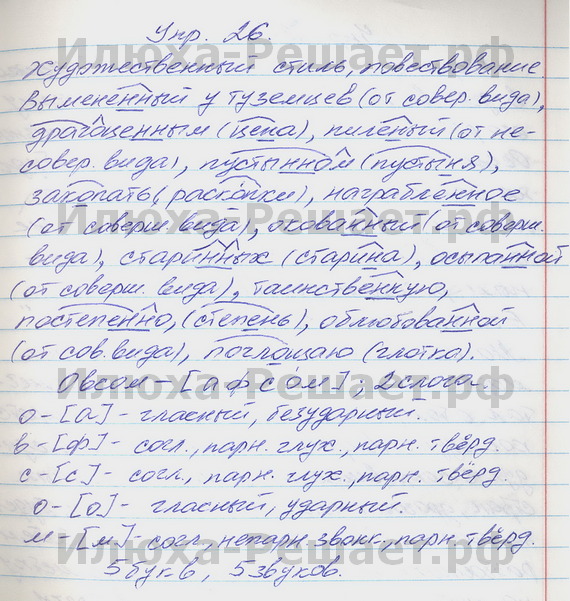 Упр. 26.
Художественный стиль, повествование.
Вымененный у туземцев (от совер. вида),
драгоценным (цена), пиленый (от не-
совер. вида), пустынном (пустыня),
закопать (раскопки), награбленное
(от соверш. вида), окованный (от соверш.
вида), старинных (старина), осыпанной
(от соверш. вида), таинственную,
постепенно, (степень), облюбованной
(от сов. вида), поглощаю (глотка).
Овсом - [афсом]; 2 слога.
о - [а] - гласный, безударный.
в - [ф] - согл., парн. глух., парн. твёрд.
с - [с] - согл., парн. глух., парн. твёрд.
о - [о] - гласный, ударный.
м - [м] - согл., непарн. звонк., парн. твёрд.
5 букв, 5 звуков.
Илюха-Решает.рф
Илюха-Решает.рф
Илюха-Решает.рф
Илюха-Решает.рф
Илюха-Решает.рф
Илюха-Решает.рф
Илюха-Решает.рф